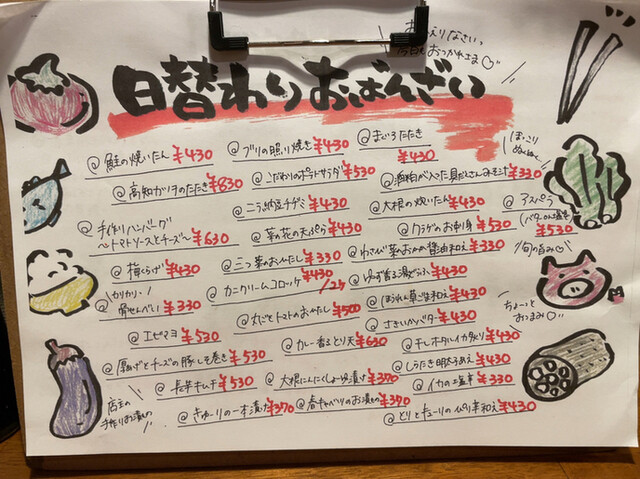 おかえりなさいっ
今日もおつかれさま♡
日替わりおばんざい
@ 鮭の焼いたん ¥430
@ ブリの照り焼き ¥430
@ まぐろたたき ¥430
ほっこり
@ 高知ガツヲのたたき ¥830
@ こだわりのポテトサラダ ¥530
@ 酒粕が入った具だくさんみそ汁 ¥330
@ 手作りハンバーグ
〜トマトソースとチーズ〜 ¥630
@ ニラ納豆チヂミ ¥430
@ 大根の炊いたん ¥430
@ アスパラ
¥530
@ 菜の花の天ぷら ¥430
@ クラゲのお刺身 ¥530
@ 梅くらげ ¥430
@ 三つ葉のおひたし ¥330
@ わさび菜のおかか醤油和え ¥330
旬の旨み♡
カリカリ・♪
@ 骨せんべい ¥330
@ カニクリームコロッケ ¥430
@ ゆず香る湯どうふ ¥430
@ エビマヨ ¥530
@ 丸ごとトマトのおひたし ¥500
@ ほうれん草ごま和え ¥430
ちょーっと
おつまみ♡
@ さきいかバター ¥430
@ 厚あげとチーズの豚しそ巻き ¥530
@ カレー香るとり天 ¥630
@ 干しホタルイカ炙り ¥430
@ しらたき明太子あえ ¥430
店主の
手作りお漬もの
@ 長芋キムチ ¥530
@ 大根にんにくしょうゆ漬け ¥370
@ イカの塩辛 ¥330
@ きゅーりの一本漬け ¥370
@ 春キャベツのお漬もの ¥370
@ とりとキューリのピリ辛和え ¥430